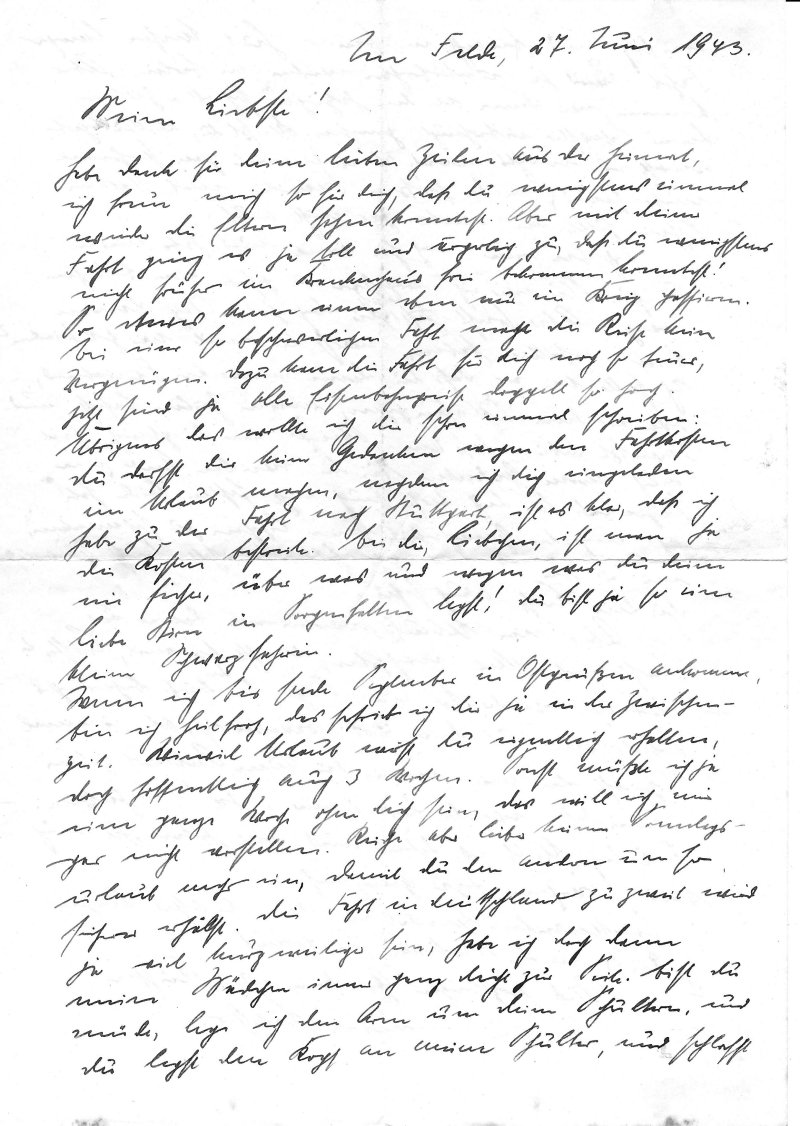 Im Felde, 27. Juni 1943.
Meine Liebste!
habe dank für deine lieben Zeilen aus der Heimat,
ich freue mich so für dich, daß du wenigstens einmal
wieder die Eltern sehen konntest. Aber mit deiner
Fahrt ging es ja toll und ärgerlich zu, daß du wenigstens
nicht früher im Krankenhaus frei bekommen konntest!
So etwas kann einem eben nur im Krieg passieren.
bei einer so beschwerlichen Fahrt macht die Reise kein
Vergnügen. dazu kam die Fahrt für dich noch so teuer,
jetzt sind ja alle Eisenbahnpreise doppelt so hoch.
Übrigens das wollte ich dir schon einmal schreiben:
du darfst dir keine Gedanken wegen den Fahrtkosten
im Urlaub machen, nachdem ich dich eingeladen
habe zu der Fahrt nach Stuttgart, ist es klar, daß ich
die Kosten bestreite. bei dir, Liebchen, ist man ja
nie sicher, über was und wegen was du deine
liebe Stirn in Sorgenfalten legst! du bist ja so eine
kleine Schwarzseherin.
Wenn ich bis Ende September in Ostpreußen ankomme,
bin ich heilfroh, das schrieb ich dir ja in der Zwischen-
zeit. Wieviel Urlaub wirst du eigentlich erhalten,
doch hoffentlich auch 3 Wochen. Sonst müßte ich ja
eine ganze Woche ohne dich sein, das will ich mir
gar nicht vorstellen. Reiche aber lieber keinen Sonntags-
urlaub mehr ein, damit du den andern um so
sicherer erhälst. die Fahrt in deutschland zu zweit wird
ja viel kurzweiliger sein, habe ich doch dann
mein Mädchen immer ganz dicht zur Seite. bist du
müde, lege ich den Arm um deine Schultern, und
du legst den Kopf an meine Schulter, und schläfst